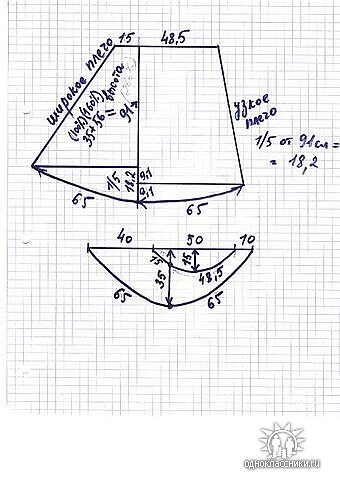 15 48,5
широкое плечо
(100%)(160%)
35+56
= высота
91
узкое
плечо
1/5 от 91см =
= 18,2
1/5
18,2
9,1
9,1
65
65
40 50 10
15
15
35
48,5
65
65
одноклассники.ru